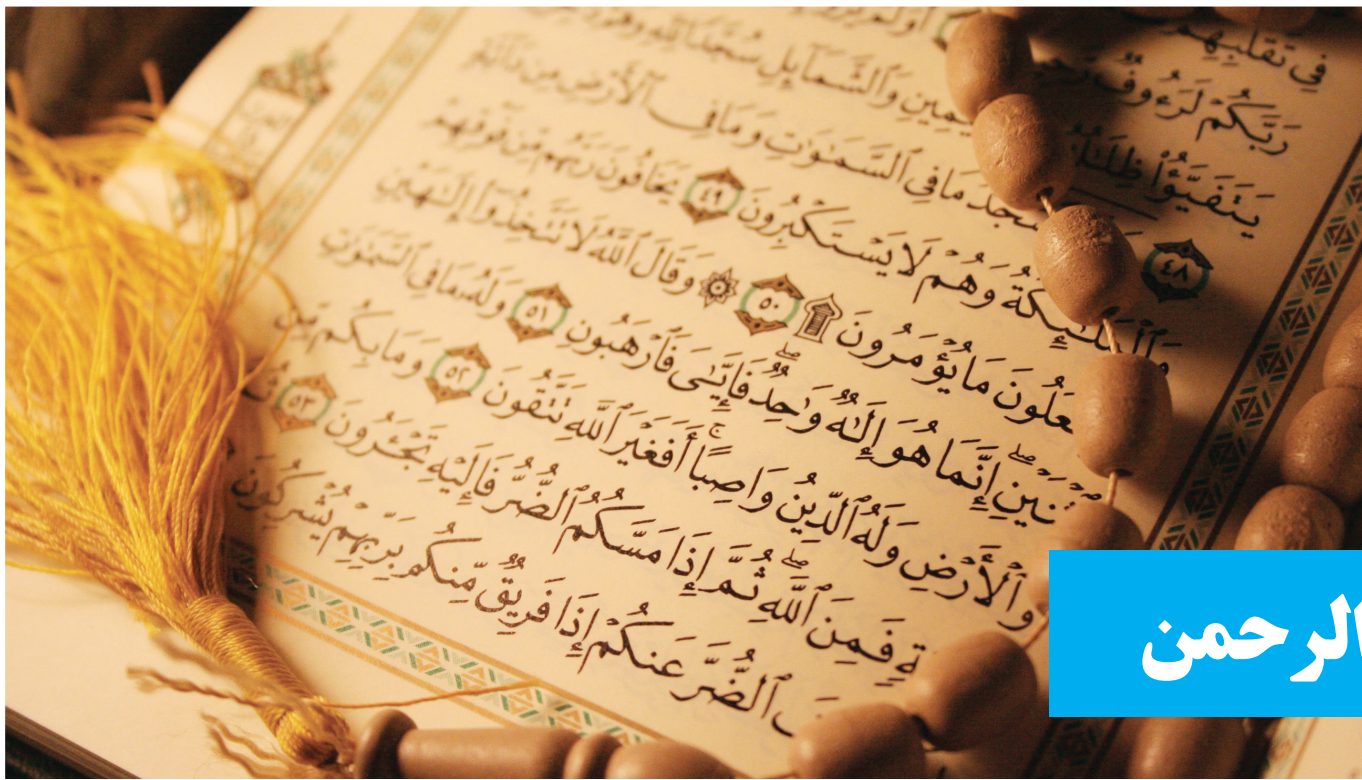 فِي تَقَلُّبِهِمْ
رَبَّكُمْ لَرَءُوفٌ
يَتَفَيَّؤُا۟ ظِلَٰلُهُ وَٱلشَّمَآئِلِ سُجَّدًا لِّلَّهِ وَهُمْ
٤٨ مَا فِي ٱلسَّمَٰوَٰتِ وَمَا فِي ٱلْأَرْضِ مِن دَآبَّةٍ
وَٱلْمَلَٰٓئِكَةُ وَهُمْ لَا يَسْتَكْبِرُونَ ٤٩ يَخَافُونَ رَبَّهُم مِّن فَوْقِهِمْ
عَلُونَ مَا يُؤْمَرُونَ ۩ ٥٠ ۞ وَقَالَ ٱللَّهُ لَا تَتَّخِذُوٓا۟ إِلَٰهَيْنِ
ثْنَيْنِۖ إِنَّمَا هُوَ إِلَٰهٌ وَٰحِدٌۖ فَإِيَّٰيَ فَٱرْهَبُونِ ٥١ وَلَهُۥ مَا فِي ٱلسَّمَٰوَٰتِ
وَٱلْأَرْضِ وَلَهُ ٱلدِّينُ وَاصِبًاۚ أَفَغَيْرَ ٱللَّهِ تَتَّقُونَ ٥٢ وَمَا بِكُم مِّن
ةٍ فَمِنَ ٱللَّهِۖ ثُمَّ إِذَا مَسَّكُمُ ٱلضُّرُّ فَإِلَيْهِ تَجْـَٔرُونَ ٥٣
فَ ٱلضُّرَّ عَنكُمْ إِذَا فَرِيقٌ مِّنكُم بِرَبِّهِمْ يُشْرِكُونَ
الرحمن